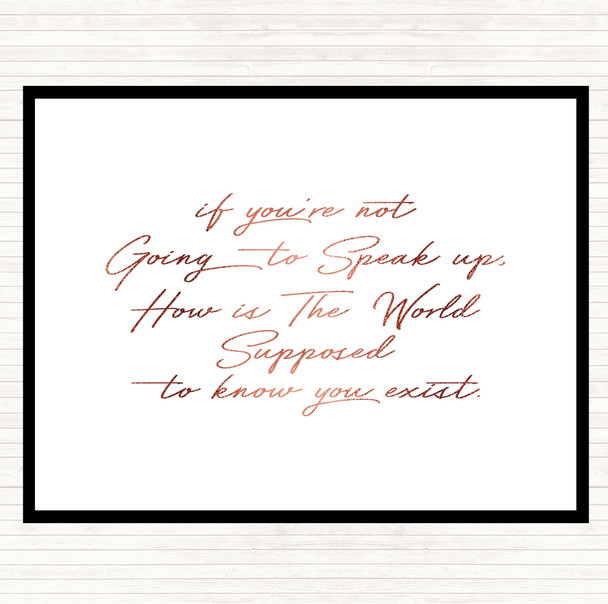 if you're not
Going to Speak up,
How is The World
Supposed
to know you exist.